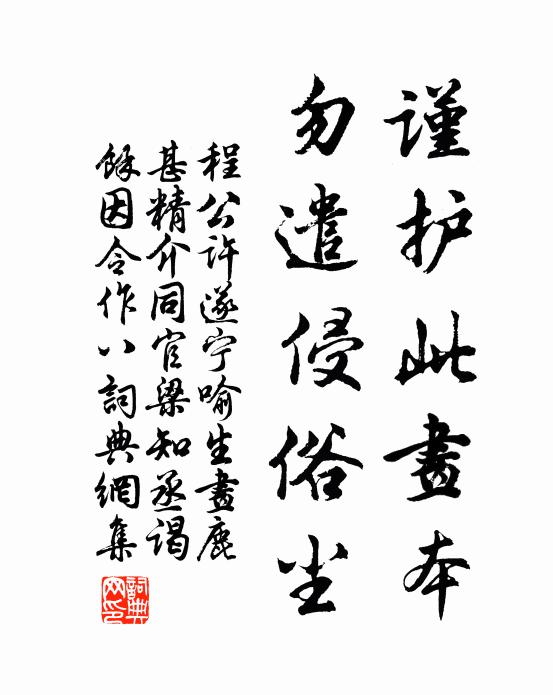 謹护此畫本
勿遣侵俗尘
程公许遂宁喻生畫鹿
甚精介同官梁知丞谒
餘因令作八詞典網集
詞典网印